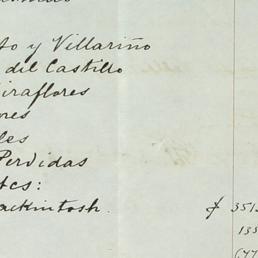 to y Villariño
del Castillo
iraflores
res
les
Perdidas
tes:
ackintosh. $ 351
133
(77